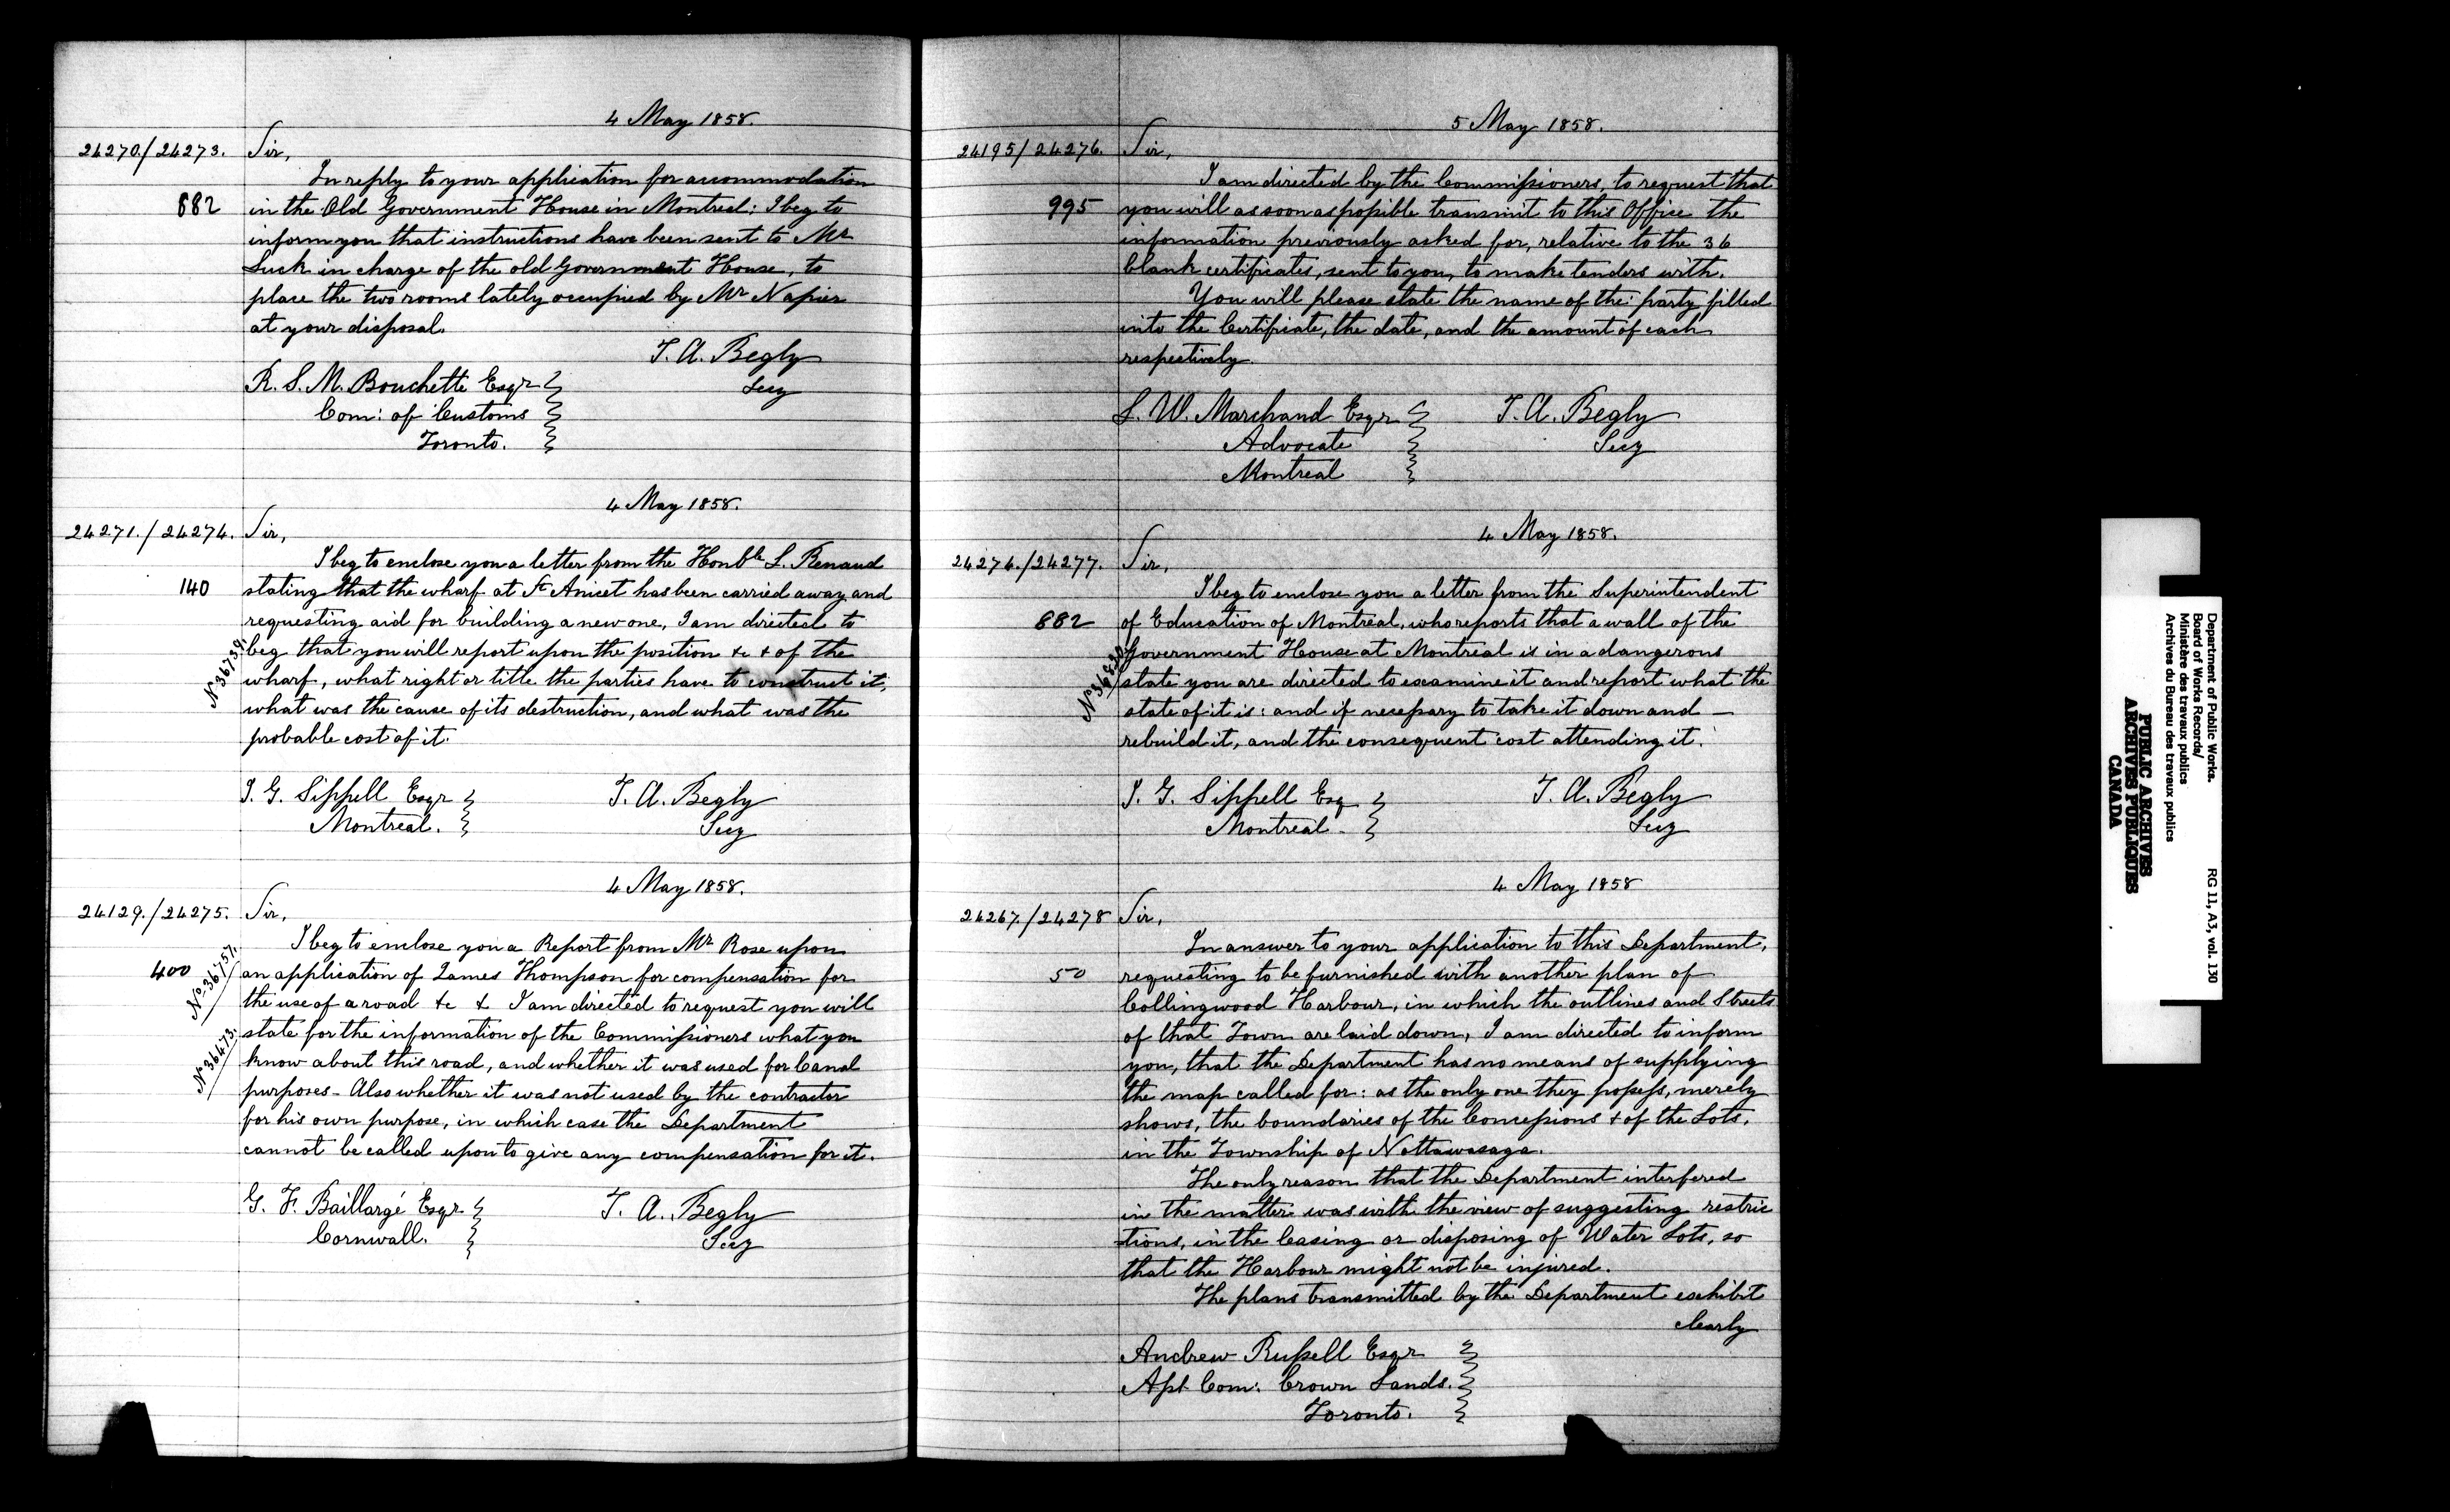 4 May 1858.
24270./24273. Sir,
In reply to your application for accommodation
682 in the Old Government House in Montreal; I beg to
inform you that instructions have been sent to Mr
Luck in charge of the old Government House, to
place the two rooms lately occupied by Mr Napier
at your disposal.
T. A. Begly
Secy
R. S. M. Bouchette Esqr
Com: of Customs
Toronto.
4 May 1858.
24271./24274. Sir,
I beg to enclose you a letter from the Honble L. Renaud
140 stating that the wharf at St Anicet has been carried away and
requesting aid for building a new one, I am directed to
beg that you will report upon the position &c & of the
No 36739.
wharf, what right or title the parties have to construct it,
what was the cause of its destruction, and what was the
probable cost of it.
J. G. Sippell Esqr
Montreal.
T. A. Begly
Secy
4 May 1858.
24129./24275. Sir,
I beg to enclose you a Report from Mr Rose upon
400 No 36757. an application of James Thompson for compensation for
the use of a road &c & I am directed to request you will
No 36473. state for the information of the Commissioners what you
know about this road, and whether it was used for Canal
purposes - Also whether it was not used by the contractor
for his own purpose, in which case the Department
cannot be called upon to give any compensation for it.
G. F. Baillargé Esqr
Cornwall.
T. A. Begly
Secy
5 May 1858.
24195/24276. Sir,
I am directed by the Commissioners, to request that
995 you will as soon as possible transmit to this Office the
information previously asked for, relative to the 36
blank certificates, sent to you, to make tenders with.
You will please state the name of the party filled
into the Certificate, the date, and the amount of each
respectively.
L. W. Marchand Esqr
Advocate
Montreal
T. A. Begly
Secy
4 May 1858.
24274./24277. Sir,
I beg to enclose you a letter from the Superintendent
682 of Education of Montreal, who reports that a wall of the
Government House at Montreal is in a dangerous
state you are directed to examine it and report what the
state of it is: and if necessary to take it down and —
rebuild it, and the consequent cost attending it.
J. G. Sippell Esq
Montreal.
T. A. Begly
Secy
4 May 1858
24267./24278 Sir,
In answer to your application to this Department,
50 requesting to be furnished with another plan of
Collingwood Harbour, in which the outlines and Streets
of that Town are laid down, I am directed to inform
you, that the Department has no means of supplying
the map called for: as the only one they possess, merely
shows, the boundaries of the Concessions & of the Lots,
in the Township of Nottawasaga.
The only reason that the Department interfered
in the matter was with the view of suggesting restric
-tions, in the leasing or disposing of Water Lots, so
that the Harbour might not be injured.
The plans transmitted by the Department exhibit
clearly
Andrew Russell Esqr
Asst Com: Crown Lands.
Toronto.
Department of Public Works.
Board of Works Records/
Ministère des travaux publics
Archives du Bureau des travaux publics
RG 11, A3, vol. 130
PUBLIC ARCHIVES
ARCHIVES PUBLIQUES
CANADA